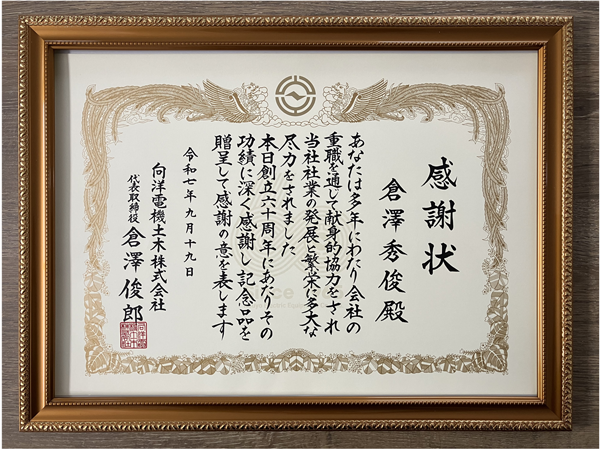 感謝状
倉澤秀俊殿
あなたは多年にわたり会社の
重職を通じて献身的協力をされ
当社社業の発展と繁栄に多大な
尽力をされました
本日創立六十周年にあたりその
功績に深く感謝し記念品を
贈呈して感謝の意を表します
令和七年九月十九日
向洋電機土木株式会社
代表取締役 倉澤俊郎